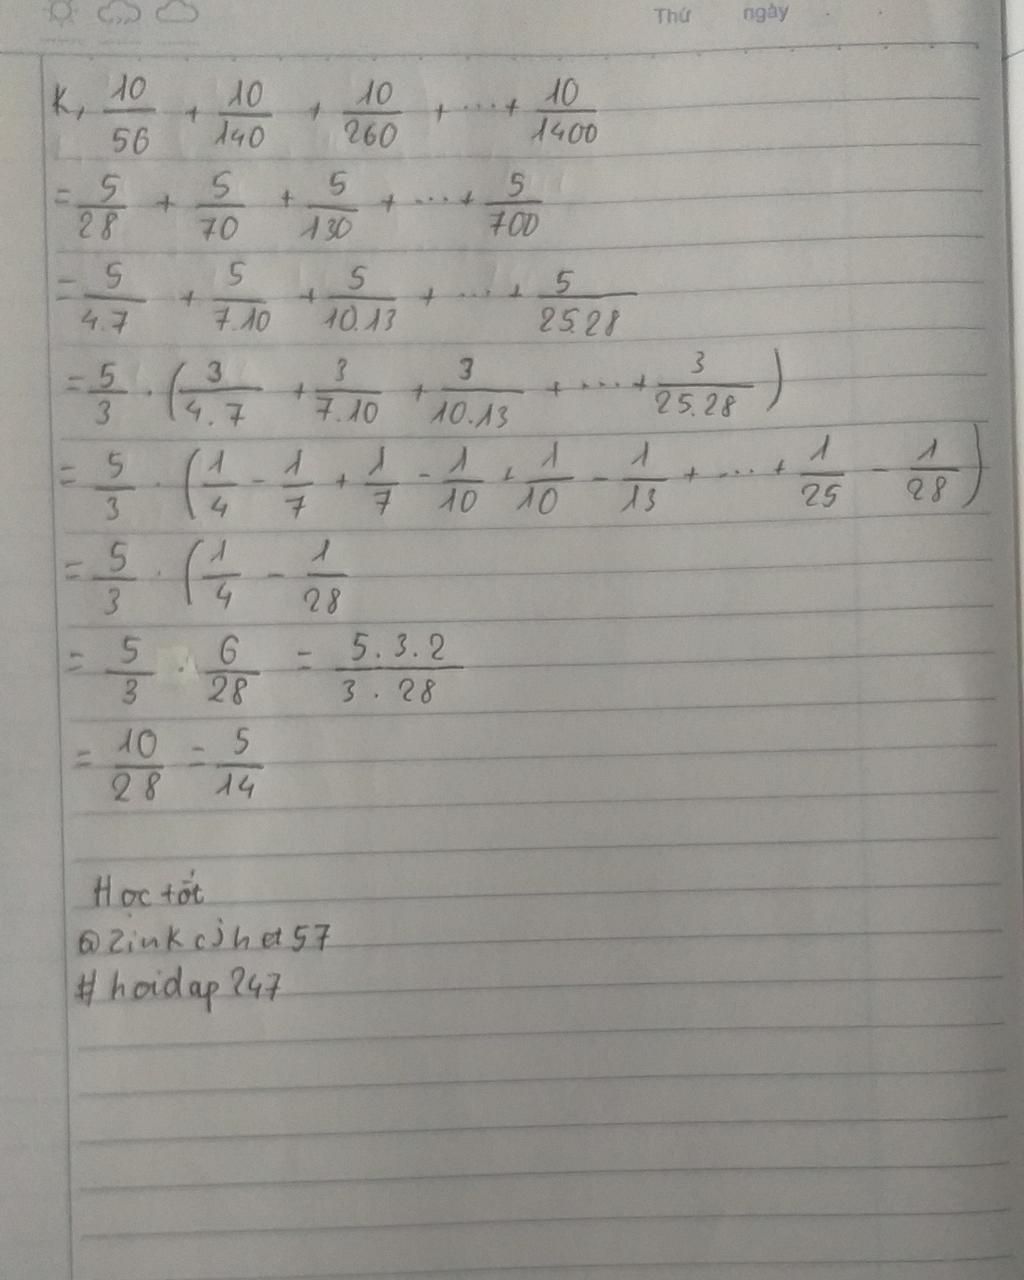 Thứ ngày
K, 10/56 + 10/140 + 10/260 + ... + 10/1400
= 5/28 + 5/70 + 5/130 + ... + 5/700
= 5/4.7 + 5/7.10 + 5/10.13 + ... + 5/25.28
= 5/3 . (3/4.7 + 3/7.10 + 3/10.13 + ... + 3/25.28)
= 5/3 . (1/4 - 1/7 + 1/7 - 1/10 + 1/10 - 1/13 + ... + 1/25 - 1/28)
= 5/3 . (1/4 - 1/28
= 5/3 . 6/28 = 5.3.2/3.28
= 10/28 = 5/14
Học tốt
#hoidap247